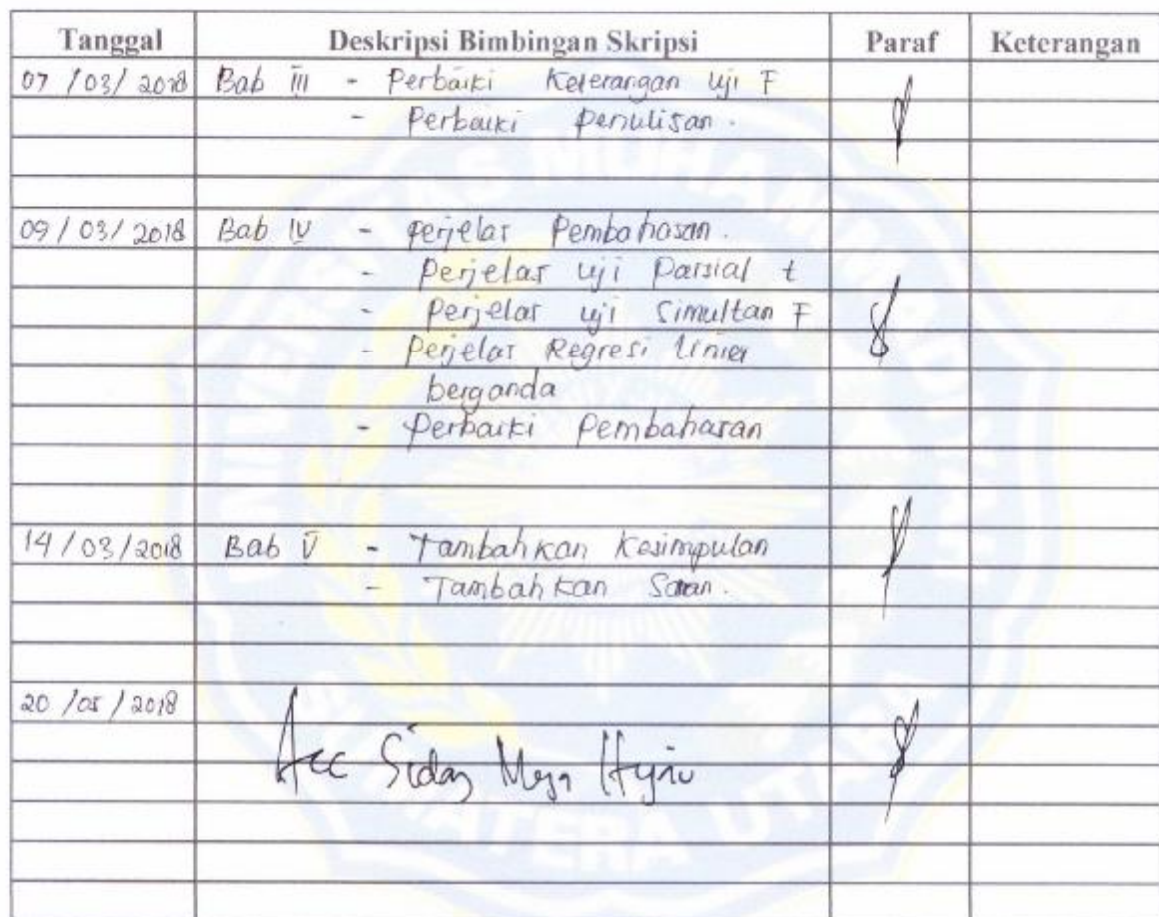 Tanggal Deskripsi Bimbingan Skripsi Paraf Keterangan
07 / 03 / 2018 Bab III - Perbaiki Keterangan uji F
- Perbaiki penulisan.
09 / 03 / 2018 Bab IV - perjelas Pembahasan.
- Perjelas uji Parsial t
- Perjelas uji Simultan F
- Perjelas Regresi Linier
berganda
- Perbaiki Pembahasan
14 / 03 / 2018 Bab V - Tambahkan Kesimpulan
- Tambahkan Saran.
20 / 05 / 2018
Acc Sidang Meja Hijau
UNIVERSITAS MUHAMMADIYAH
SUMATERA UTARA